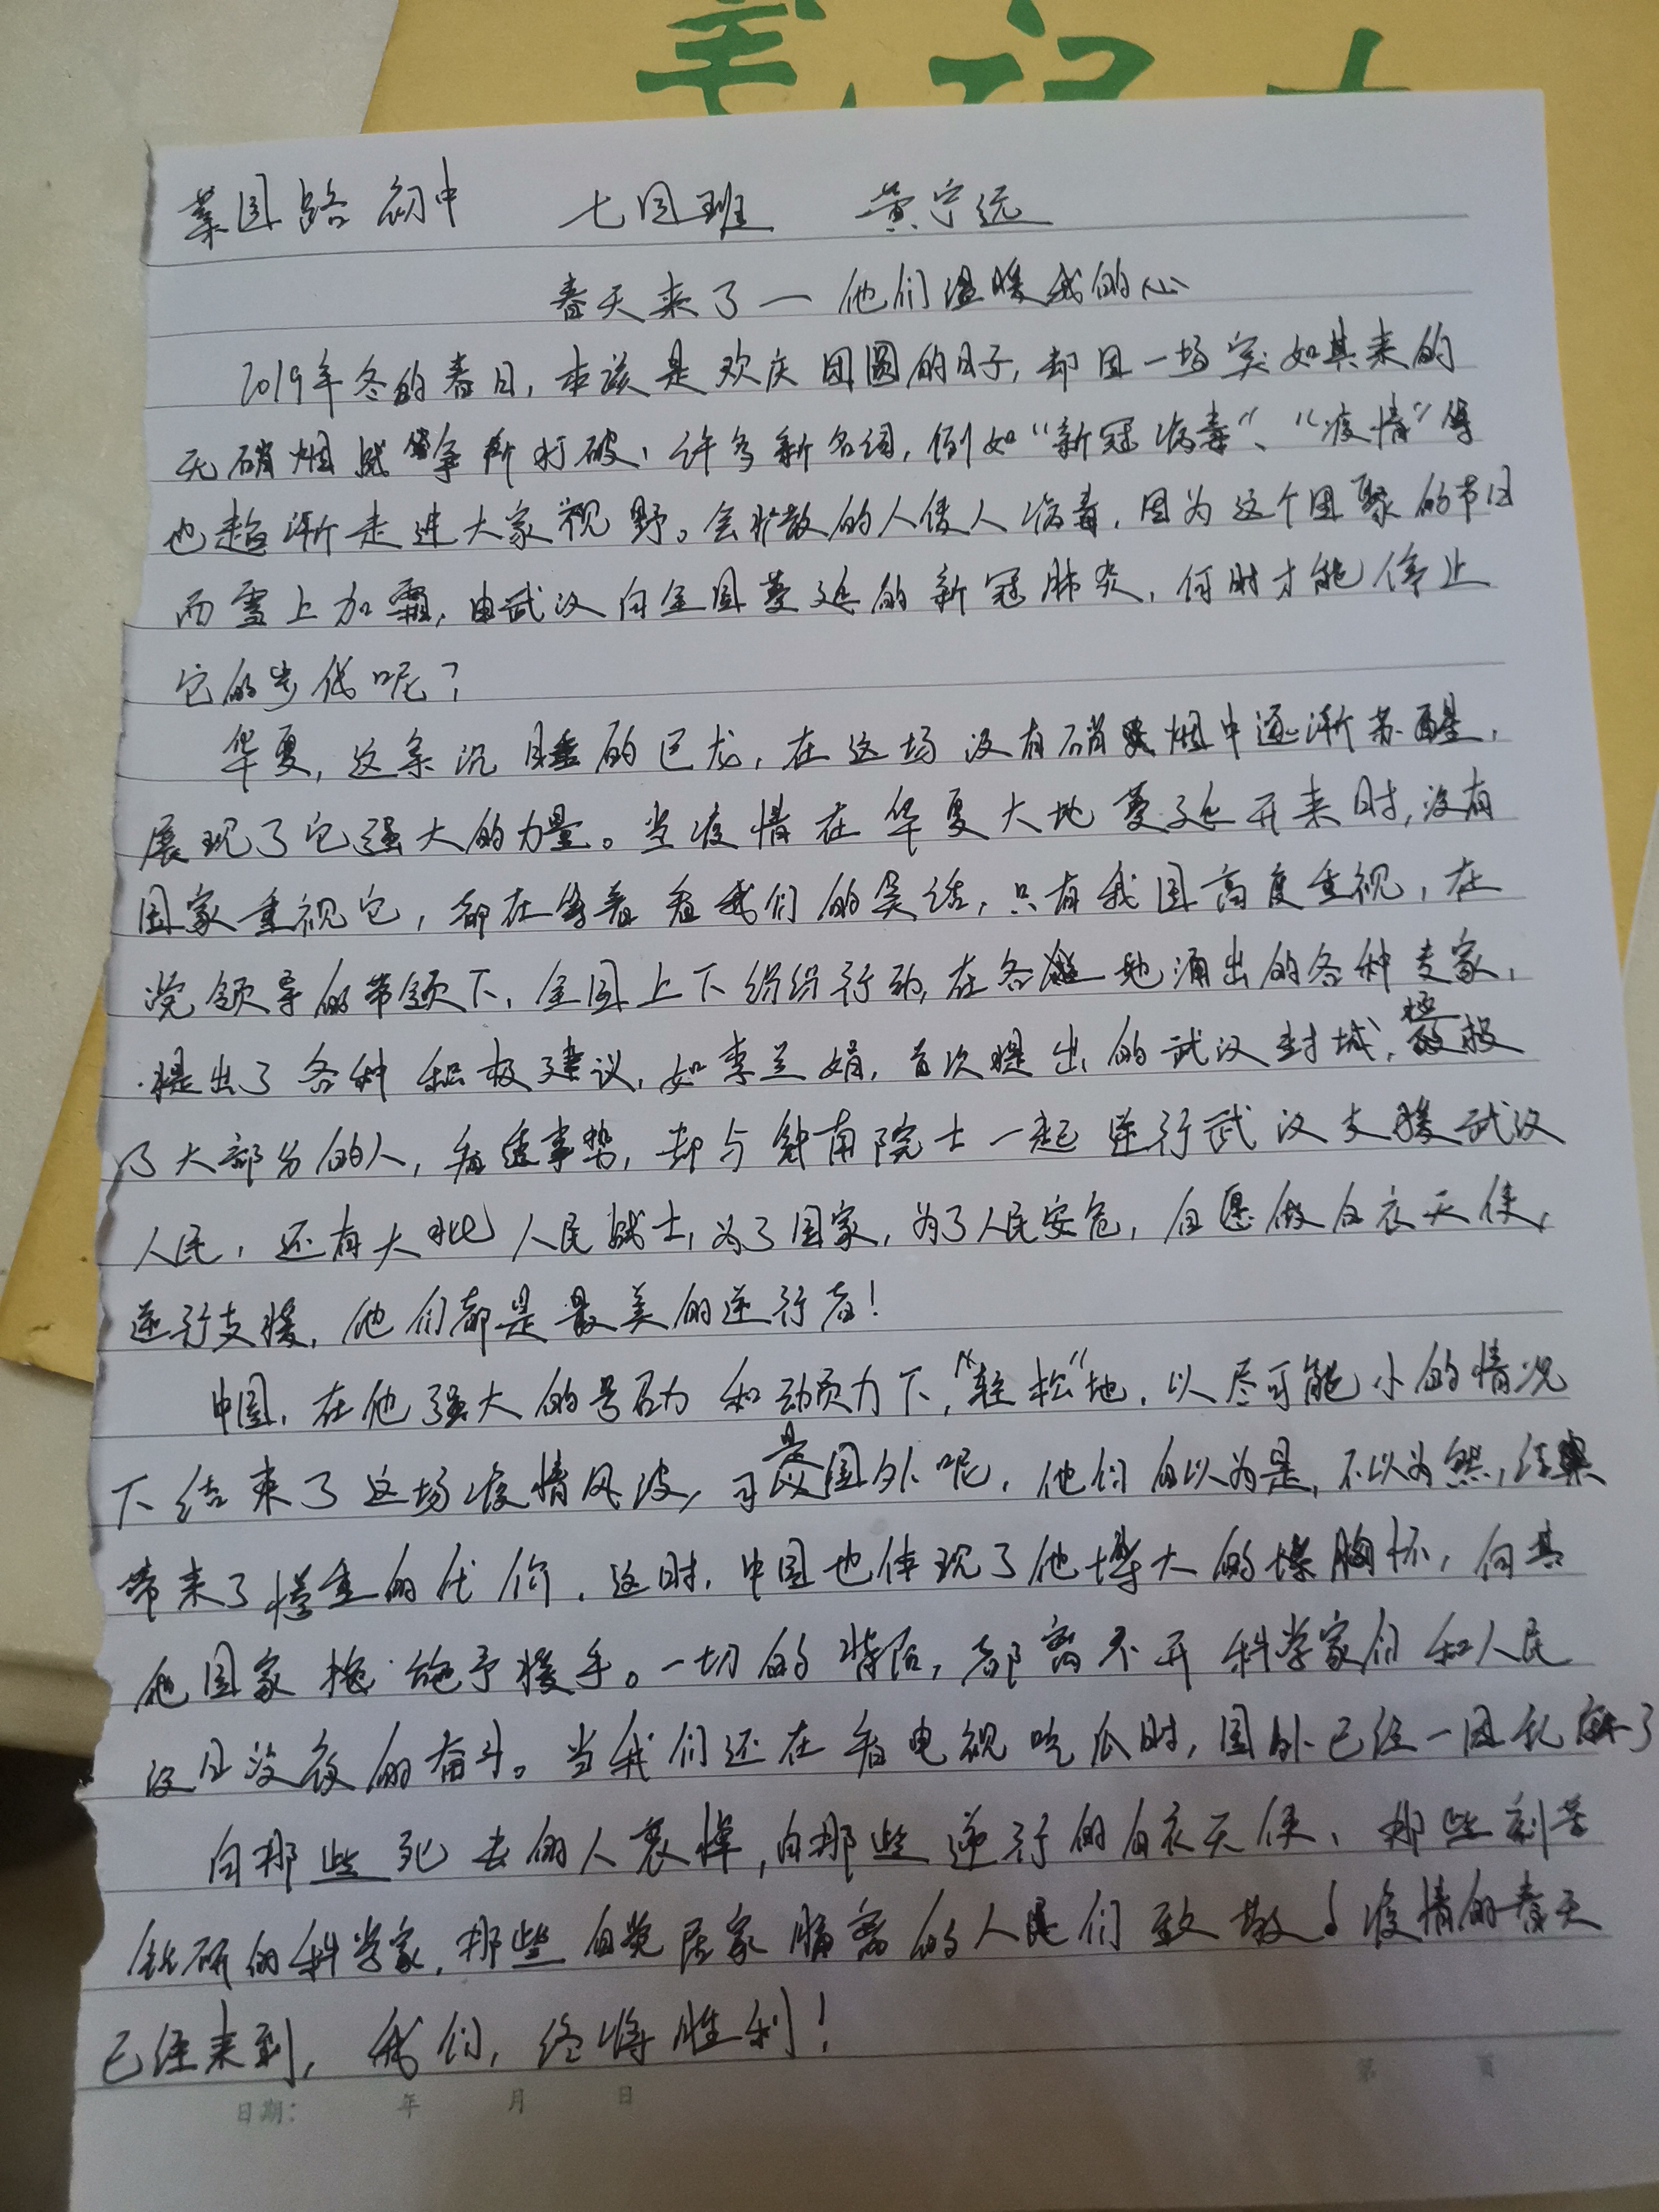 笔记本
菜园路初中 七四班 黄宁远
春天来了一他们温暖我的心
2019年冬的春日，本该是欢庆团圆的日子，却因一场突如其来的
无硝烟战争所打破，许多新名词，例如“新冠病毒”、“疫情”等
也趋渐走进大家视野。会扩散的人侵人病毒，因为这个团聚的节日
而雪上加霜，由武汉向全国蔓延的新冠肺炎，何时才能停止
它的步伐呢？
华夏，这条沉睡的巨龙，在这场没有硝烟中逐渐苏醒，
展现了它强大的力量。当疫情在华夏大地蔓延开来时，没有
国家重视它，都在等着看我们的笑话，只有我国高度重视，在
党领导的带领下，全国上下纷纷行动，在各地涌出的各种专家，
提出了各种积极建议，如李兰娟，首次提出的武汉封城，拯救
了大部分的人，看透事势，却与钟南院士一起逆行武汉支援武汉
人民，还有大批人民战士，为了国家，为了人民安危，自愿做白衣天使，
逆行支援，他们都是最美的逆行者！
中国，在他强大的号召力和动员力下，“轻松”地，以尽可能小的情况
下结束了这场疫情风波，可是国外呢，他们自以为是，不以为然，结果
带来了惨重的代价，这时，中国也体现了他博大的胸怀，向其
他国家施予援手。一切的背后，都离不开科学家们和人民
没日没夜的奋斗。当我们还在看电视吃瓜时，国外已经一团乱麻了
向那些死去的人哀悼，向那些逆行的白衣天使、那些刻苦
钻研的科学家，那些自觉居家隔离的人民们致敬！疫情的春天
已经来到，我们，终将胜利！
日期： 年 月 日 第 页